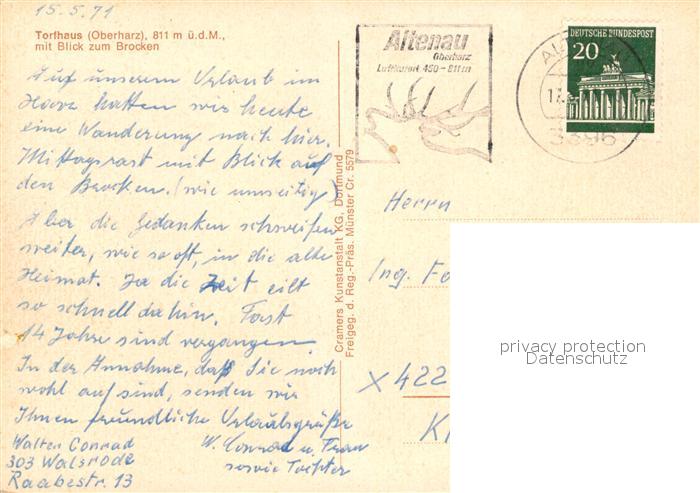 15.5.71
Torfhaus (Oberharz), 811 m ü.d.M.,
mit Blick zum Brocken
Auf unserem Urlaub im
Harz hatten wir heute
eine Wanderung nach hier.
Mittagsrast mit Blick auf
den Brocken. (wie umseitig)
Aber die Gedanken schweifen
weiter, wie so oft, in die alte
Heimat. Ja die Zeit eilt
so schnell dahin. Fast
14 Jahre sind vergangen.
In der Annahme, daß Sie noch
wohl auf sind, senden wir
Ihnen freundliche Urlaubsgrüße
W. Conrad u. Frau
sowie Tochter
Walter Conrad
303 Walsrode
Raabestr. 13
Cramers Kunstanstalt KG, Dortmund
Freigeg. d. Reg.-Präs. Münster Cr. 5579
Altenau
Oberharz
Luftkurort 450-811m
DEUTSCHE BUNDESPOST
20
17.
3396
Herrn
Ing.
X 422
privacy protection
Datenschutz